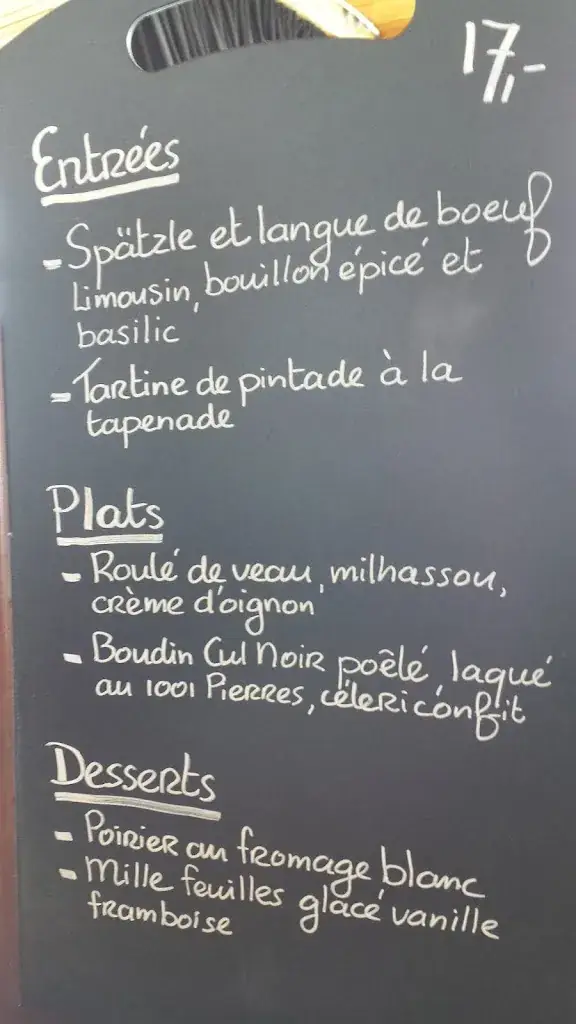 17,-
Entrées
- Spätzle et langue de boeuf
Limousin, bouillon épicé et
basilic
- Tartine de pintade à la
tapenade
Plats
- Roulé de veau, milhassou,
crème d'oignon
- Boudin Cul Noir poêlé laqué
au 1001 Pierres, céleri confit
Desserts
- Poirier au fromage blanc
- Mille feuilles glacé vanille
framboise